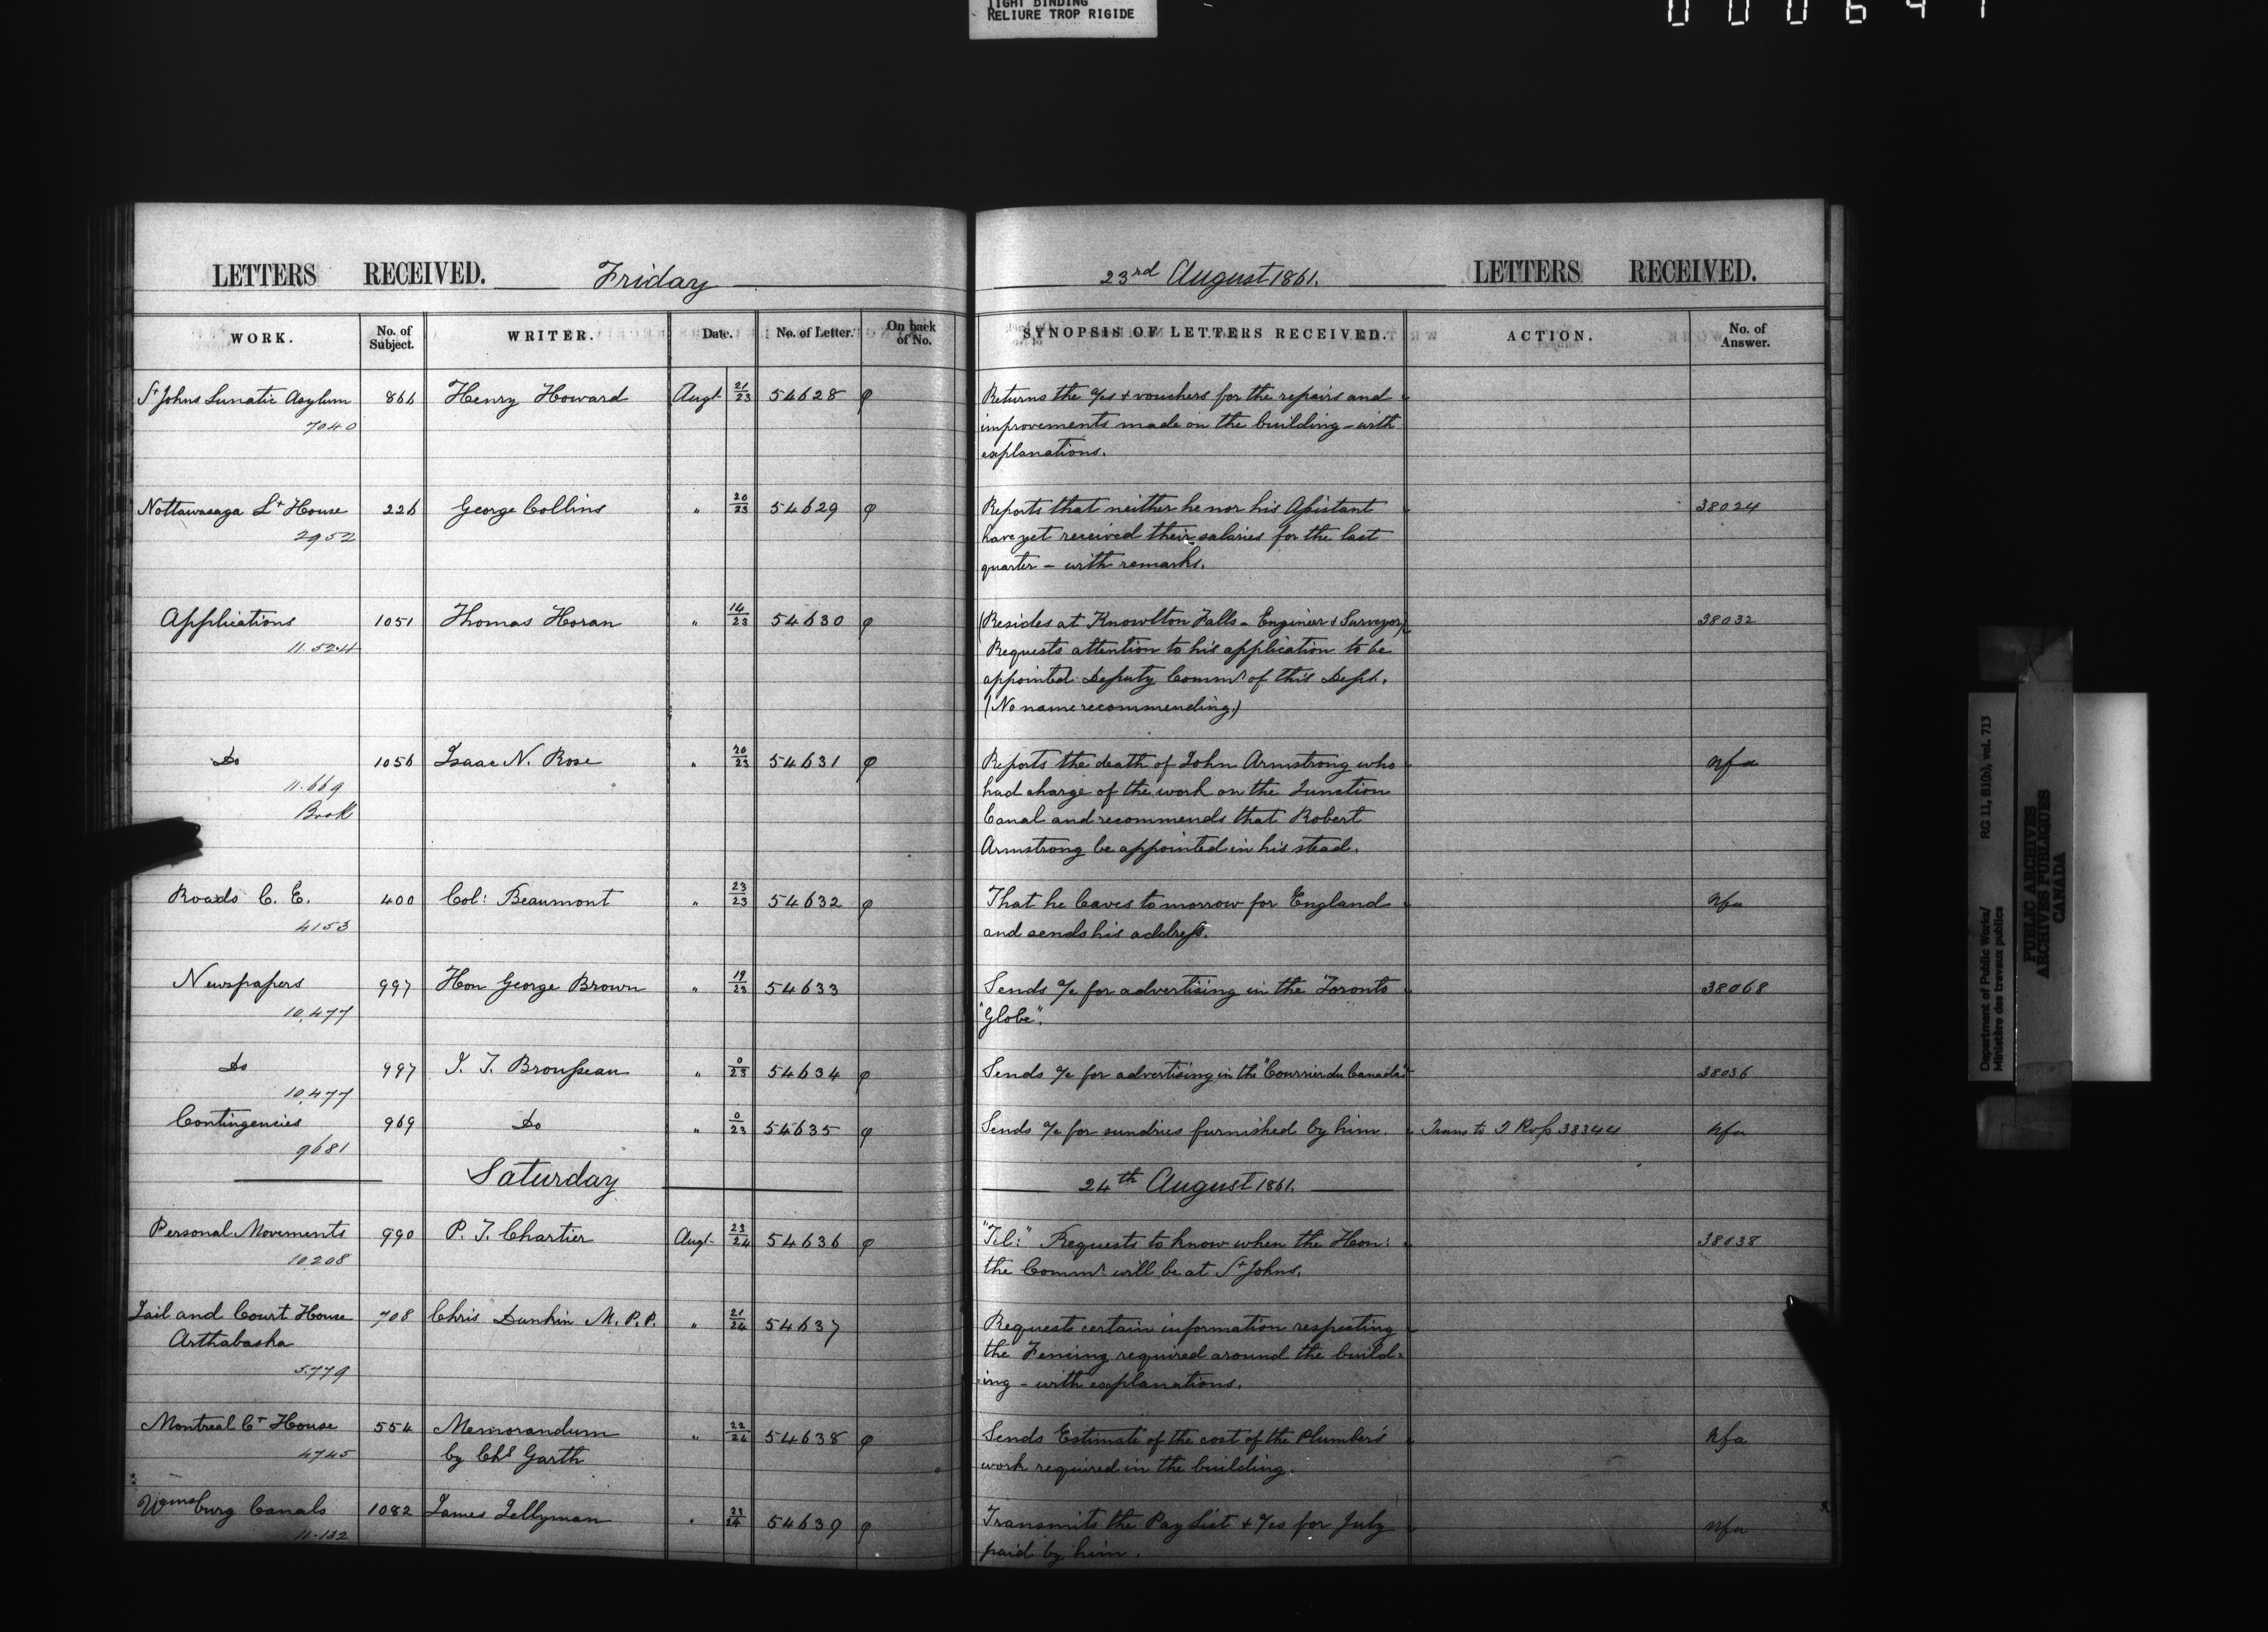 TIGHT BINDING
RELIURE TROP RIGIDE
LETTERS RECEIVED. Friday
23rd August 1861. LETTERS RECEIVED.
WORK. No. of Subject. WRITER. Date. No. of Letter. On back of No. SYNOPSIS OF LETTERS RECEIVED. ACTION. No. of Answer.
St Johns Lunatic Asylum 866 Henry Howard Augt 21/23 54628 φ Returns the a/cs & vouchers for the repairs and
7040 improvements made on the building - with
explanations.
Nottawasaga Lt House 226 George Collins " 20/23 54629 φ Reports that neither he nor his Assistant 38024
2952 have yet received their salaries for the last
quarter - with remarks.
Applications 1051 Thomas Horan " 14/23 54630 φ (Resides at Knowlton Falls - Engineer & Surveyor) 38032
11.524 Requests attention to his application to be
appointed Deputy Commr of this Dept.
(No name recommending.)
Do 1056 Isaac N. Rose " 20/23 54631 φ Reports the death of John Armstrong who nfa
11.669 had charge of the work on the Junction
Book Canal and recommends that Robert
Armstrong be appointed in his stead.
Roads C. E. 400 Col: Beaumont " 23/23 54632 φ That he leaves tomorrow for England nfa
4153 and sends his address.
Newspapers 997 Hon George Brown " 19/23 54633 Sends a/c for advertising in the Toronto 38068
10,477 "Globe".
Do 997 J. T. Brousseau " 0/23 54634 φ Sends a/c for advertising in the "Courrier du Canada" 38036
10,477
Contingencies 969 Do " 0/23 54635 φ Sends a/c for sundries furnished by him. Trans to J Ross 38344 nfa
9681
Saturday 24th August 1861.
Personal Movements 990 P. J. Chartier Augt 23/24 54636 φ "Tel:" Requests to know when the Hon: 38038
10208 the Commr will be at St Johns.
Jail and Court House 708 Chris Dunkin M.P.P. " 21/24 54637 Requests certain information respecting
Arthabaska the Fencing required around the build-
5.779 ing - with explanations.
Montreal Ct House 554 Memorandum " 22/24 54638 φ Sends Estimate of the cost of the Plumber's nfa
4745 by Chs Garth work required in the building.
Wmsburg Canals 1082 James Jellyman " 23/24 54639 φ Transmits the Pay List & a/cs for July nfa
11.132 paid by him.
Department of Public Works/ RG 11, B1(b), vol. 713
Ministère des travaux publics
PUBLIC ARCHIVES
ARCHIVES PUBLIQUES
CANADA